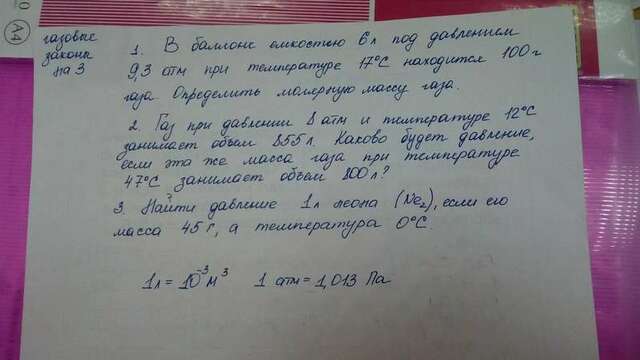 A4
газовые
законы
на 3
1. В баллоне емкостью 6 л под давлением
9,3 атм при температуре 17°С находится 100 г
газа. Определить молярную массу газа.
2. Газ при давлении 8 атм и температуре 12°С
занимает объем 855 л. Каково будет давление,
если эта же масса газа при температуре
47°С занимает объем 800 л?
3. Найти давление 1 л неона (Ne₂), если его
масса 45 г, а температура 0°С.
1 л = 10⁻³ м³ 1 атм = 1,013 Па